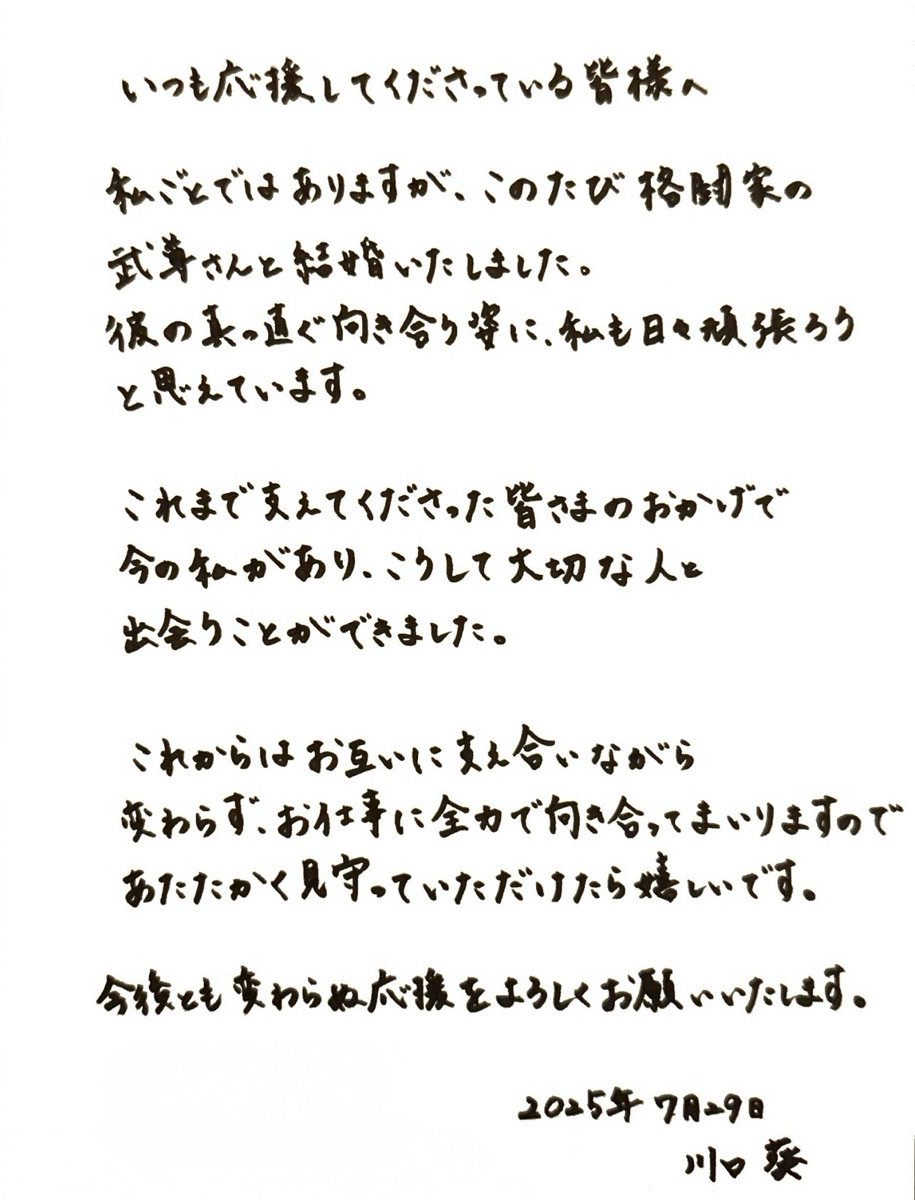 いつも応援してくださっている皆様へ
私ごとではありますが、このたび格闘家の
武尊さんと結婚いたしました。
彼の真っ直ぐ向き合う姿に、私も日々頑張ろう
と思えています。
これまで支えてくださった皆さまのおかげで
今の私があり、こうして大切な人と
出会うことができました。
これからはお互いに支え合いながら
変わらず、お仕事に全力で向き合ってまいりますので
あたたかく見守っていただけたら嬉しいです。
今後とも変わらぬ応援をよろしくお願いいたします。
2025年 7月29日
川口 葵